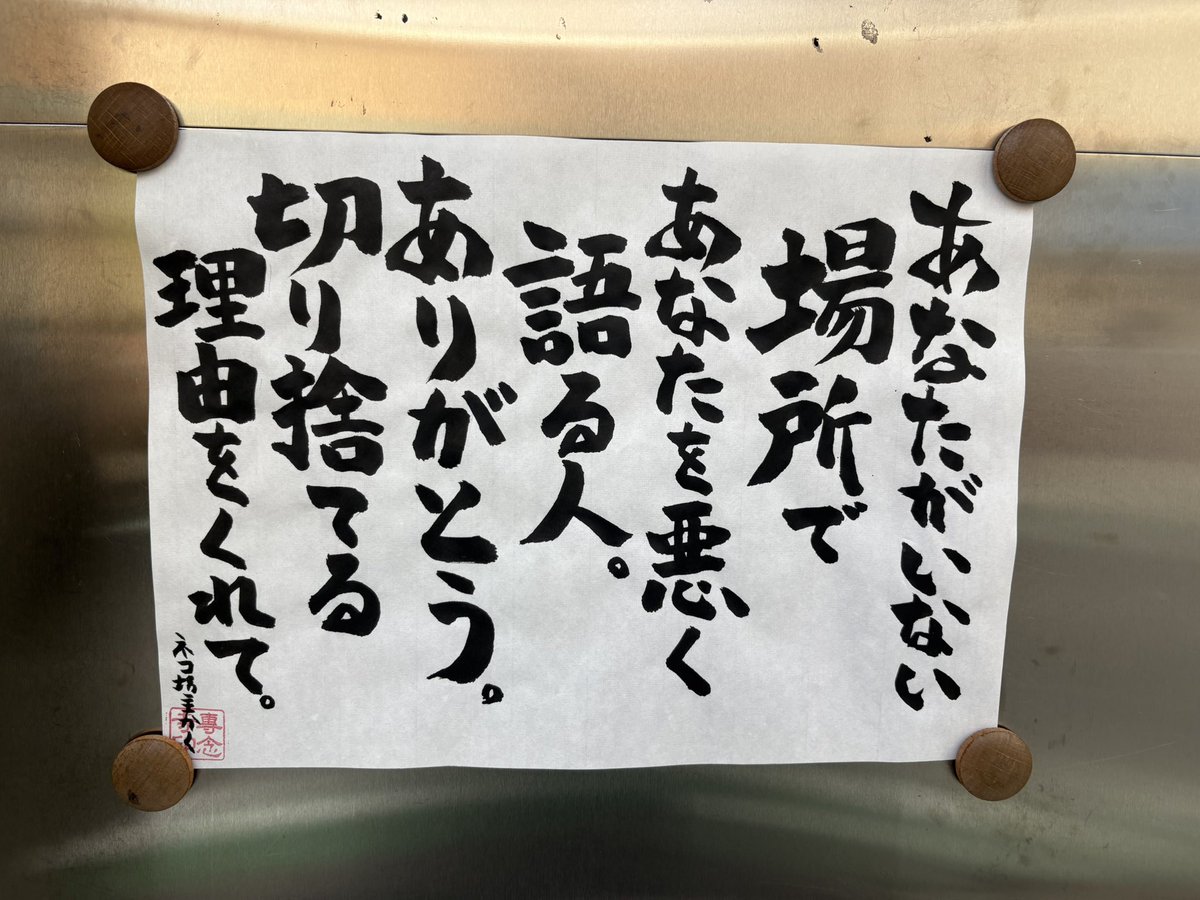 あなたがいない
場所で
あなたを悪く
語る人。
ありがとう。
切り捨てる
理由をくれて。
ネコ坊主かく
専念